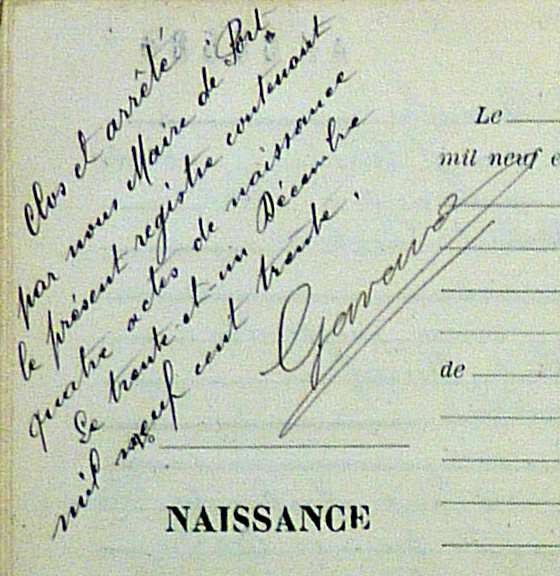 Clos et arrêté
par nous Maire de Port
le présent registre contenant
quatre actes de naissance
Le trente-et-un Décembre
mil neuf cent trente.
NAISSANCE
Le
mil neuf c
de